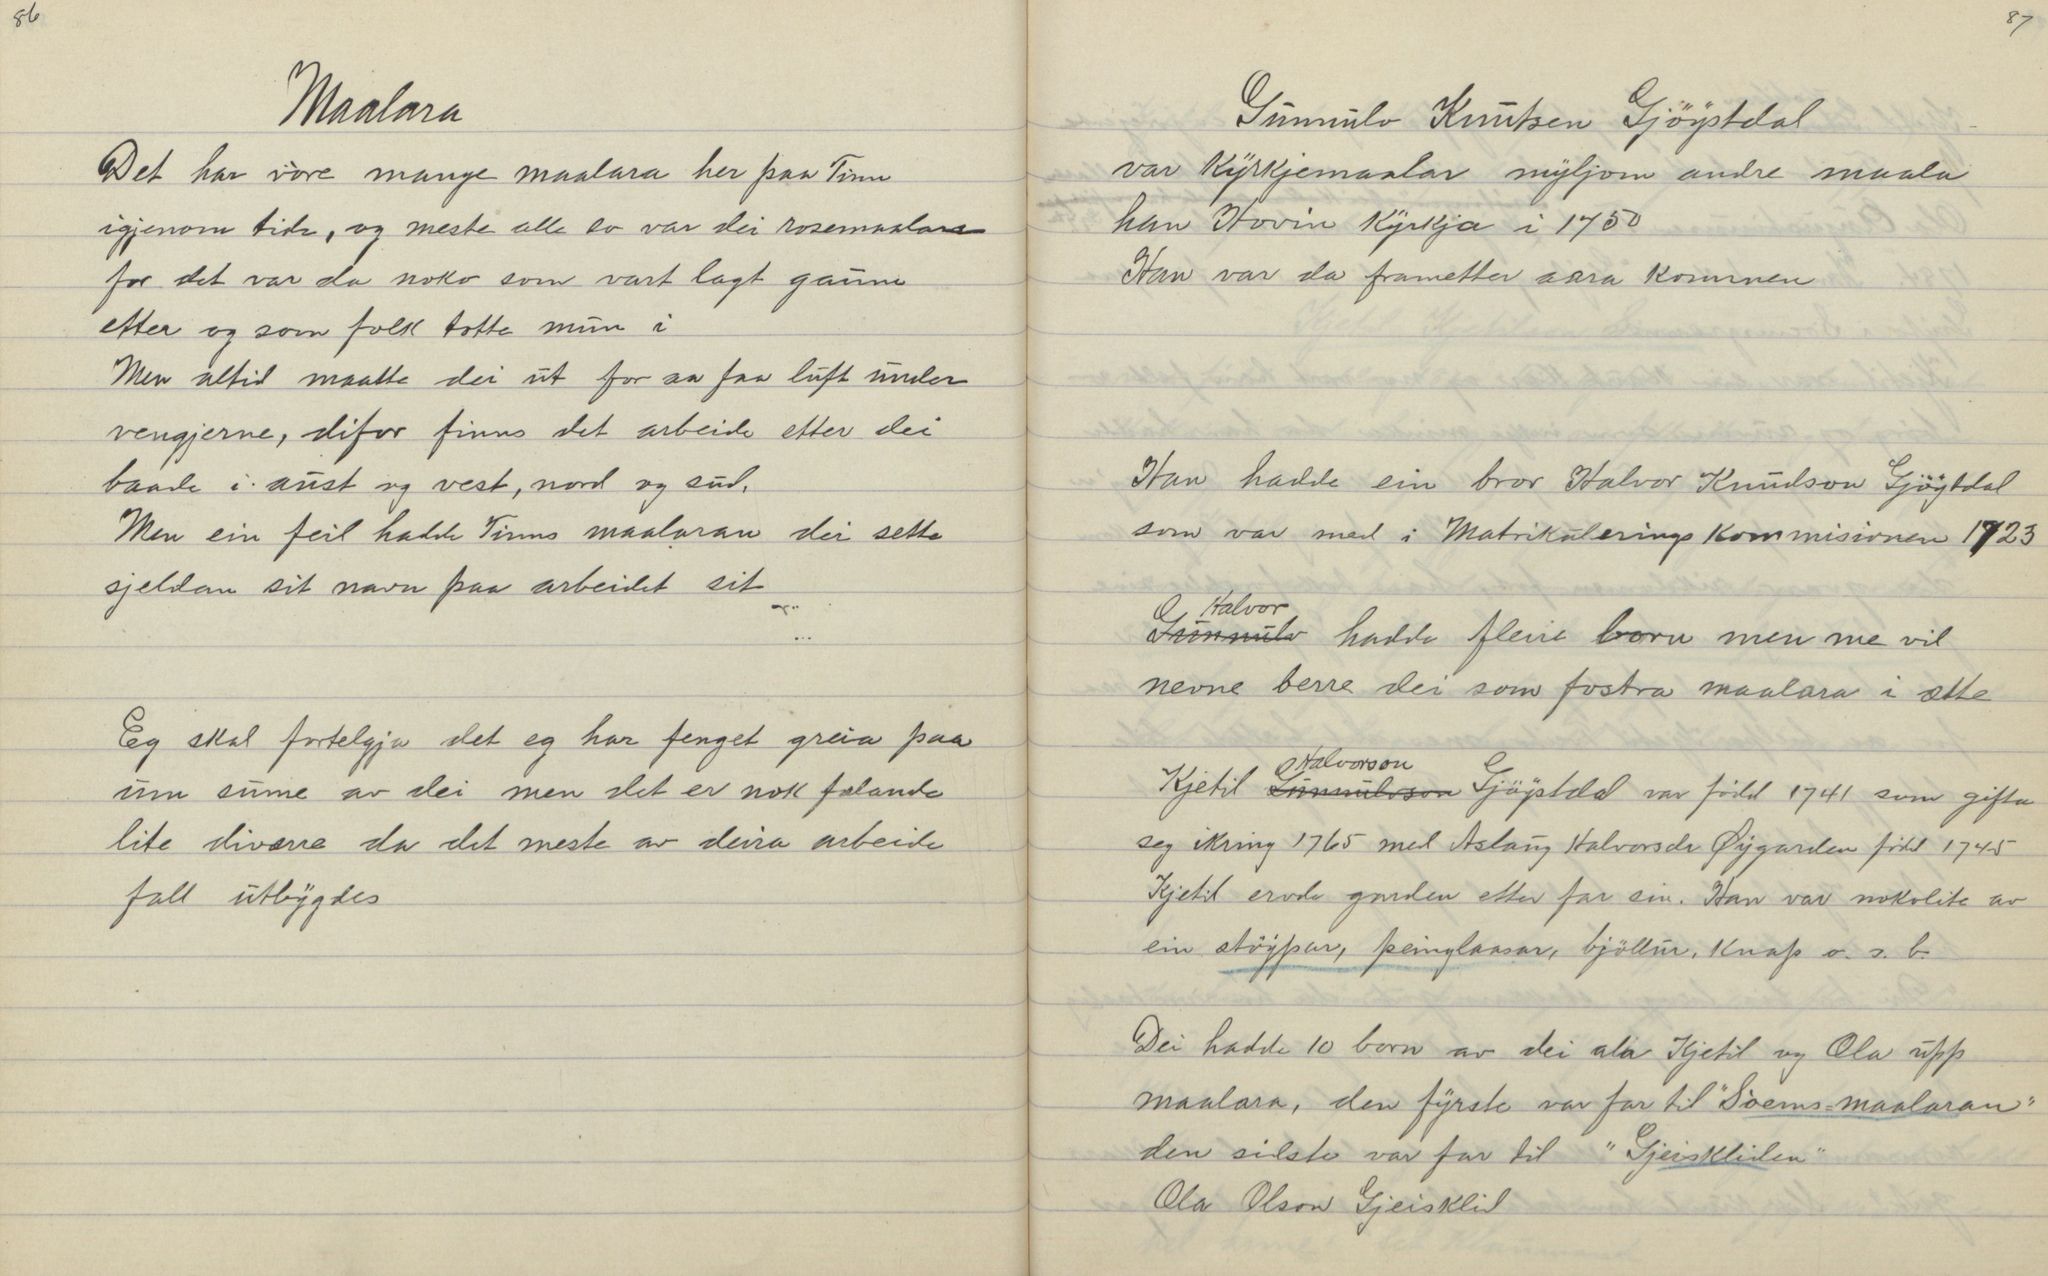 86
Maalara
Det har vore mange maalara her paa Tinn
igjenom tide, og meste alle so var dei rosemaalara
for det var da noko som vart lagt gaum
etter og som folk totte mun i
Men altid maatte dei ut for aa faa luft under
vengjerne, difor finns det arbeide etter dei
baade i aust og vest, nord og sud.
Men ein feil hadde Tinns maalaran dei sette
sjeldan sit navn paa arbeidet sit
Eg skal fortelgja det eg har fenget greia paa
um sume av dei men det er nok falande
lite diværre da det meste av deira arbeide
fall utbygdes
87
Gunnulv Knutsen Gjøystdal
var Kyrkjemaalar myljom andre maala
han Hovin Kyrkja i 1750
Han var da frametter aara kommen
Han hadde ein bror Halvor Knudson Gjøystdal
som var med i Matrikulerings Kommisionen 1723
Halvor
Gunnulv hadde fleire born men me vil
nevne berre dei som fostra maalara i ætte
Halvorson
Kjetil Gunnulvson Gjøystdal var född 1741 som gifta
seg ikring 1765 med Aslaug Halvorsdr Øygarden född 1745
Kjetil ervde garden etter far sin. Han var nokolite av
ein støypar, peinglaasar, bjöllur, Knap o. s. b.
Dei hadde 10 born av dei ala Kjetil og Ola upp
maalara, den fyrste var far til "Söems=maalaran"
den sidste var far til "Gjeiskliden"
Ola Olson Gjeisklid